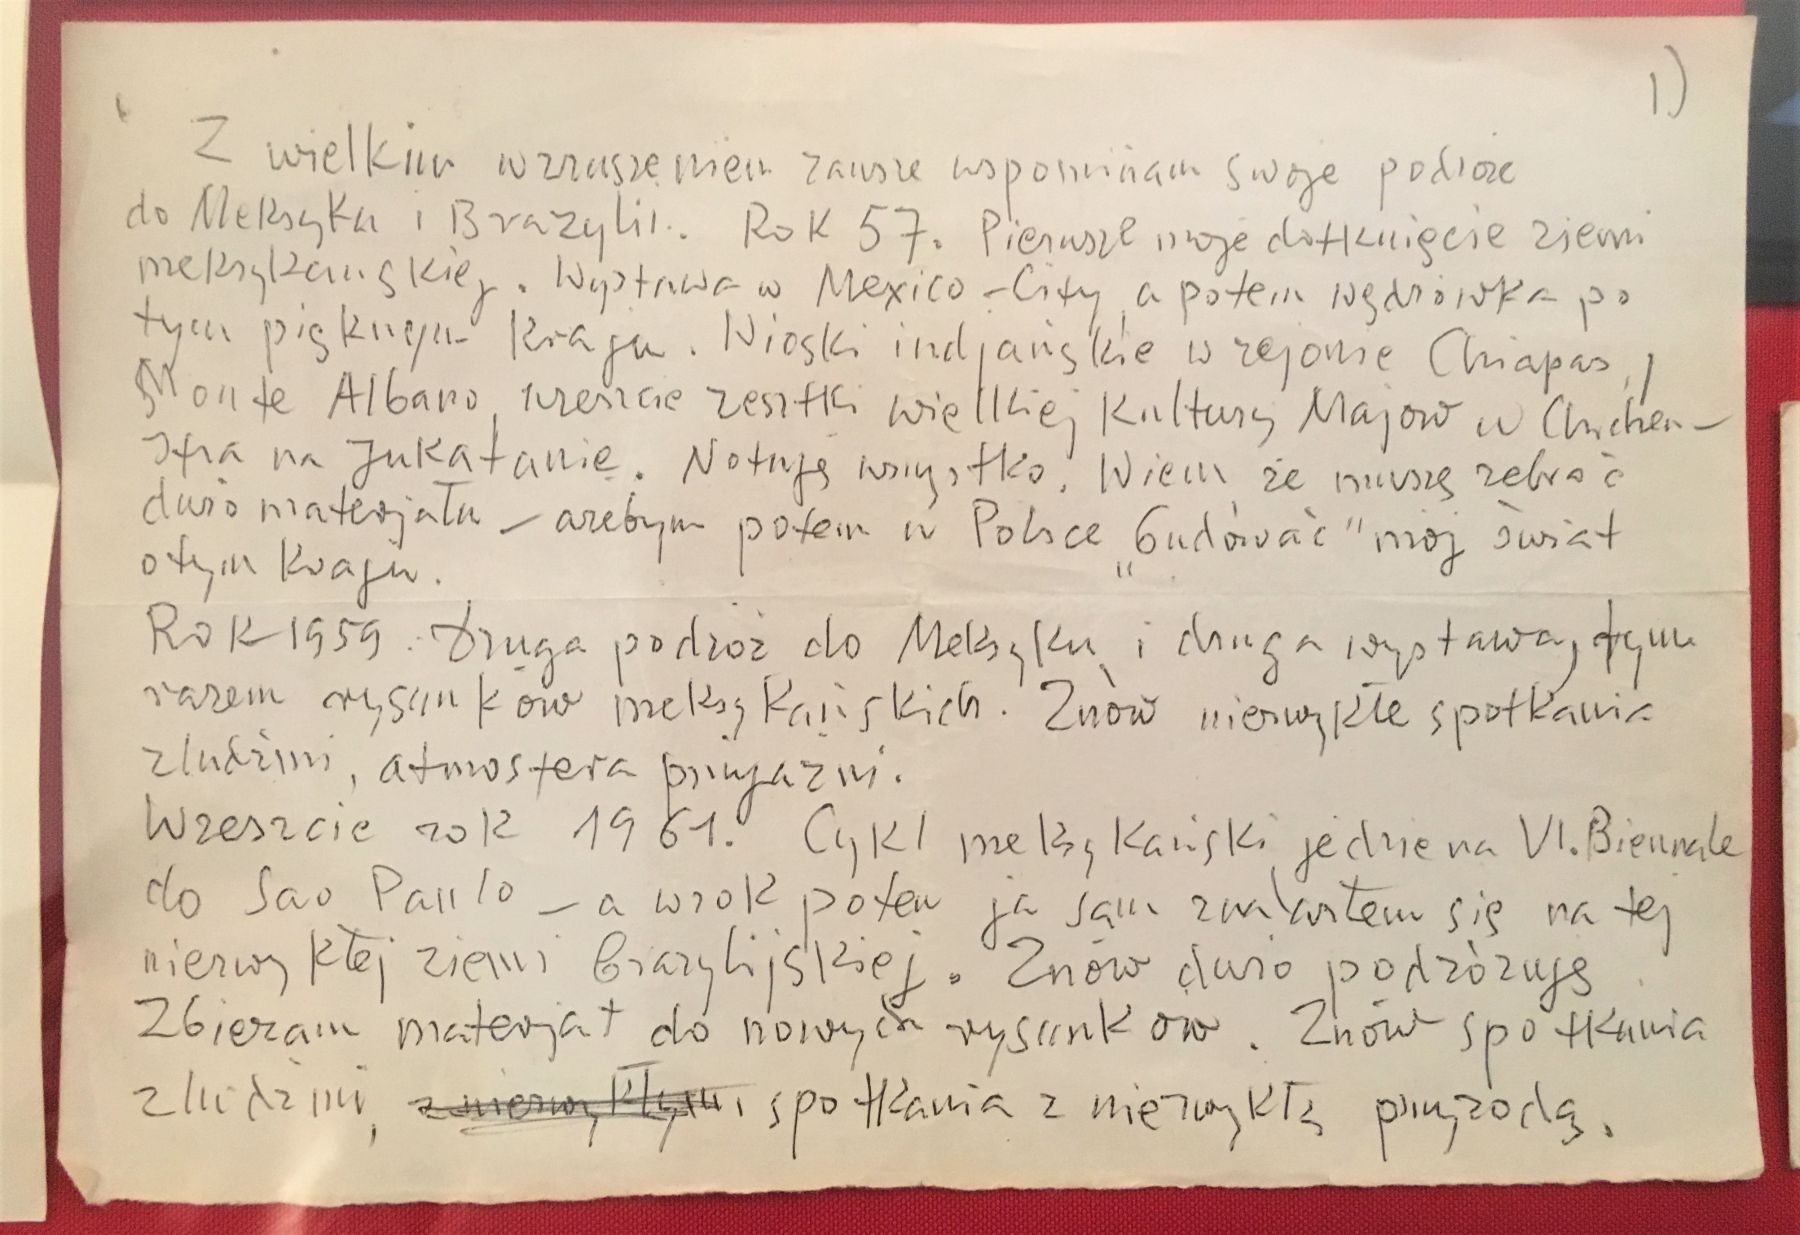 1)
Z wielkim wzruszeniem zawsze wspominam swoje podróże
do Meksyku i Brazylii. Rok 57. Pierwsze moje dotknięcie ziemi
meksykańskiej. Wystawa w Mexico-City, a potem wędrówka po
tym pięknym kraju. Wioski indjańskie w rejonie Chiapas,
Monte Albano, wreszcie resztki wielkiej kultury Majów w Chichen-
Itra na Jukatanie. Notuję wszystko. Wiem, że muszę zebrać
dużo materjału – ażebym potem w Polsce „budować" mój świat
o tym kraju.
Rok 1959. Druga podróż do Meksyku i druga wystawa, tym
razem rysunków meksykańskich. Znów niezwykłe spotkania
z ludźmi, atmosfera przyjaźni.
Wreszcie rok 1961. Cykl meksykański jedzie na VI. Biennale
do Sao Paulo – a w rok potem ja sam znalazłem się na tej
niezwykłej ziemi brazylijskiej. Znów dużo podróżuję
Zbieram materjał do nowych rysunków. Znów spotkania
z ludźmi, z niezwykłymi spotkania z niezwykłą przyrodą.